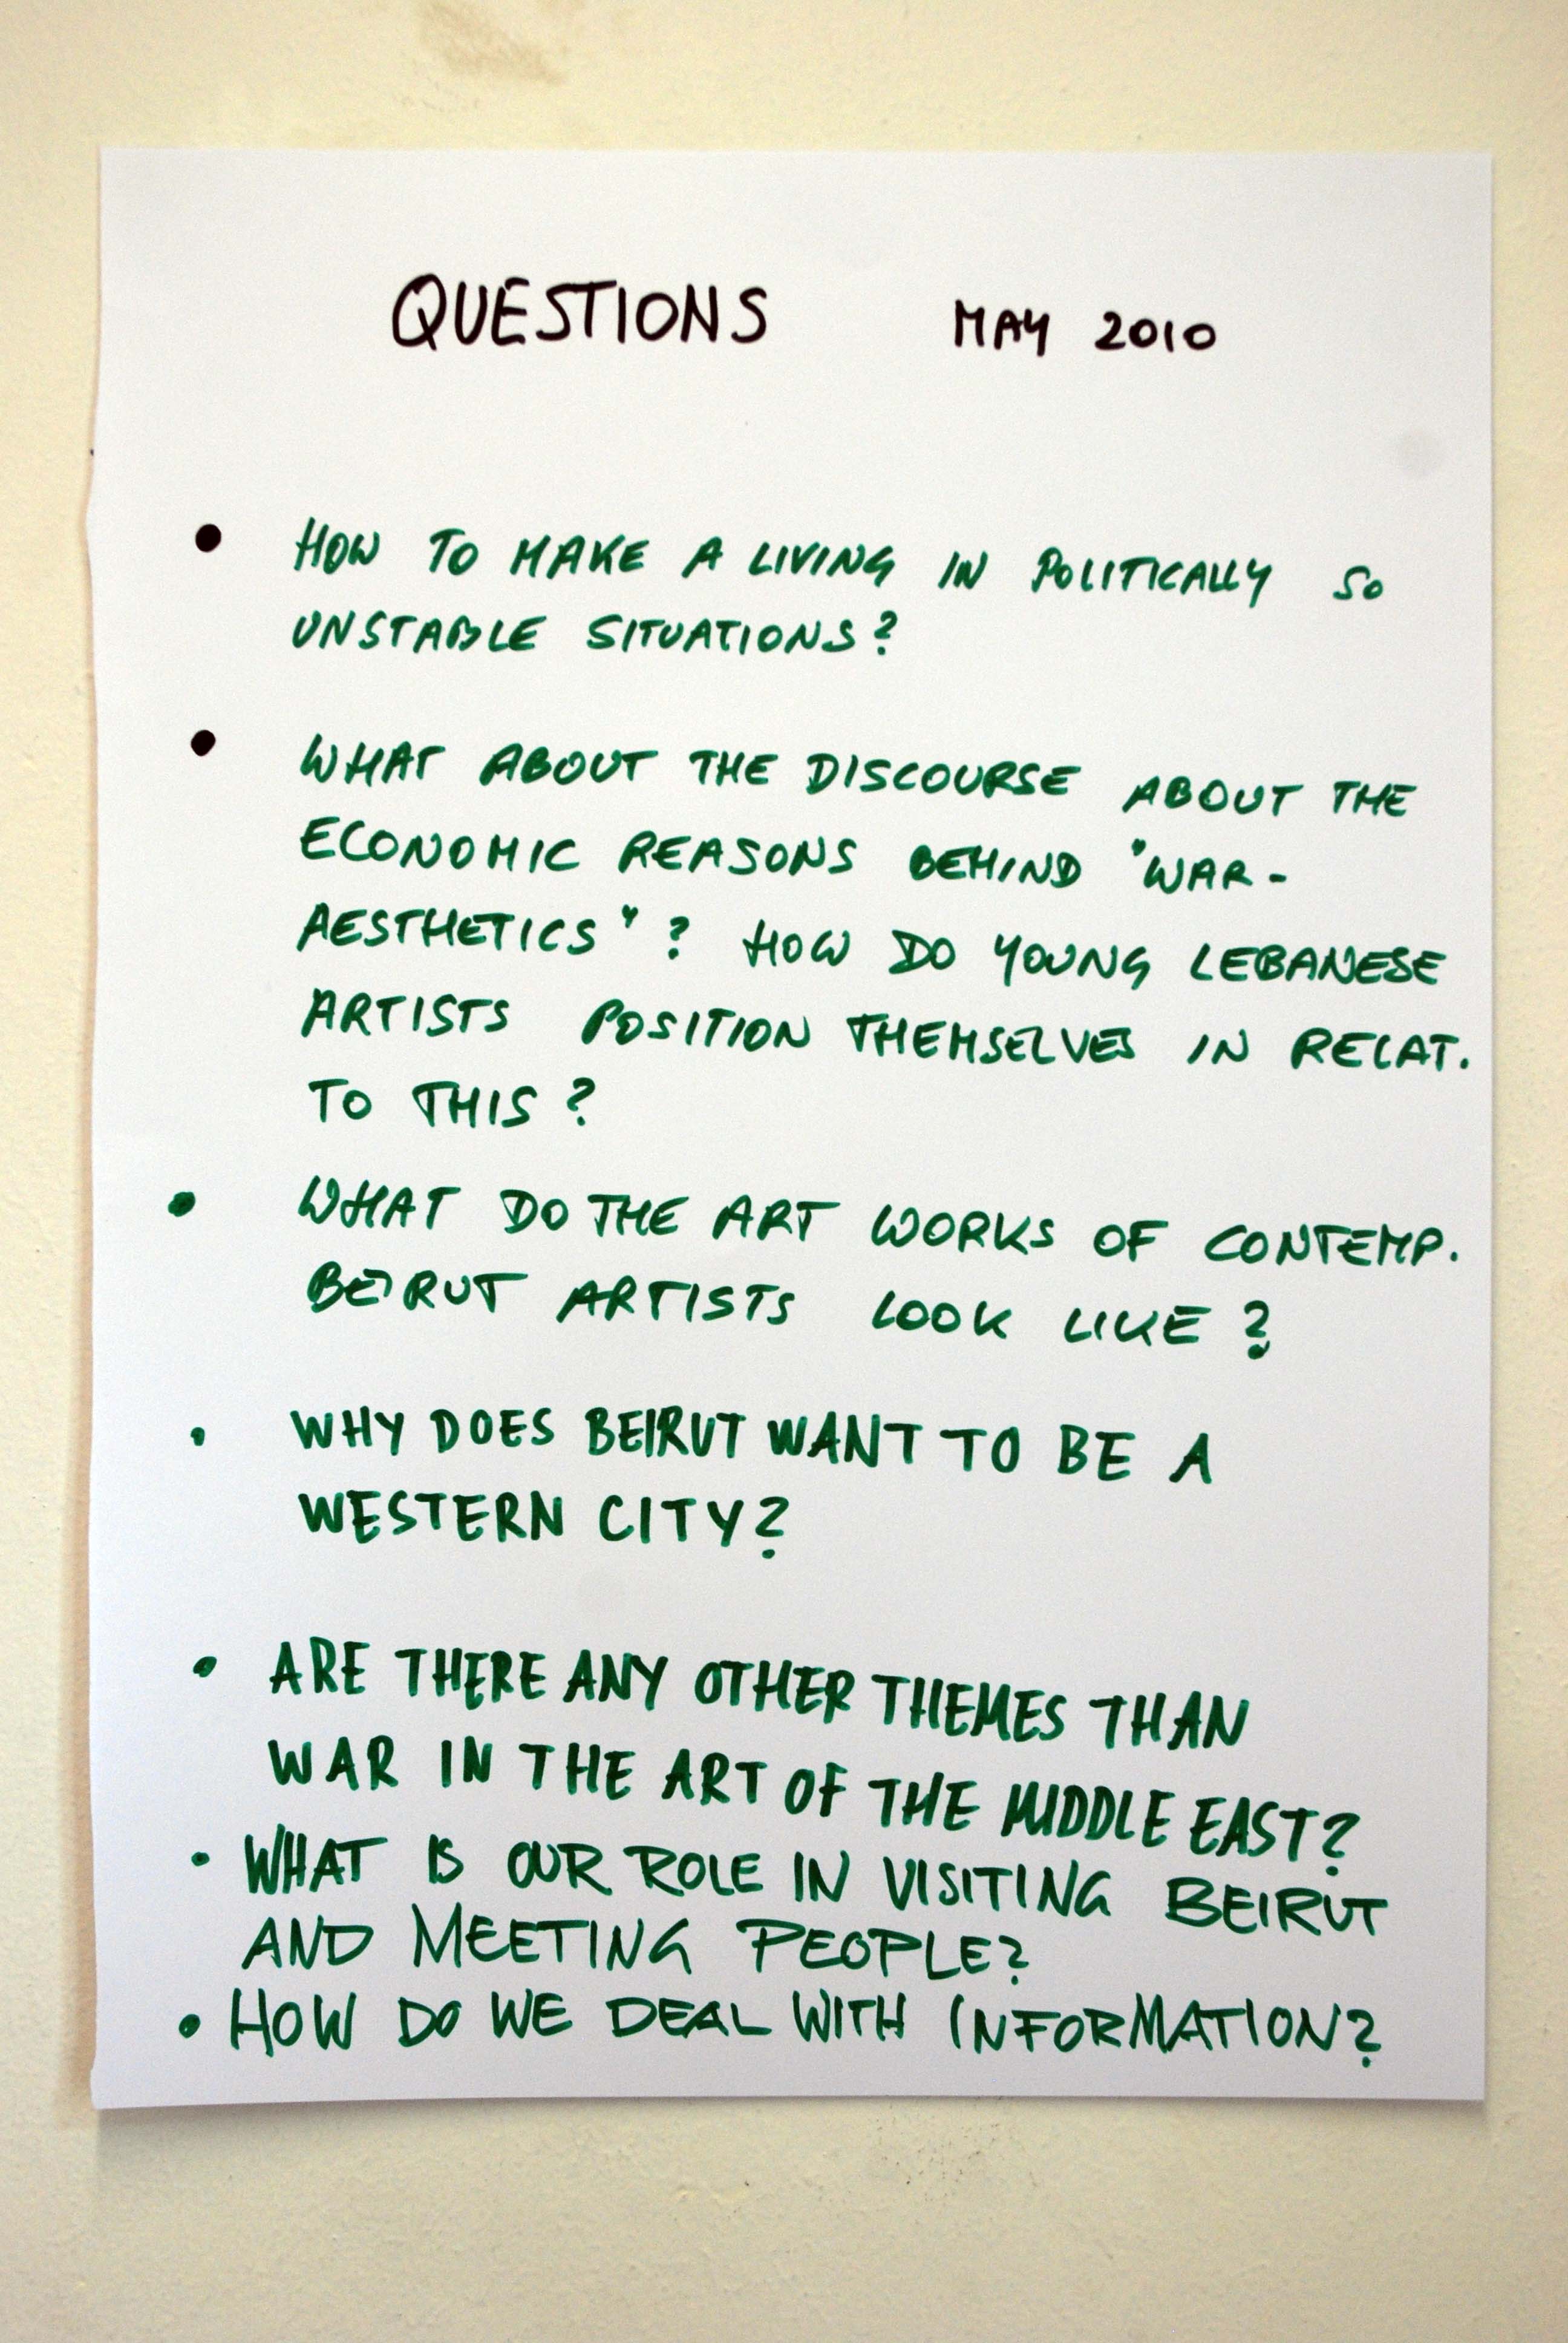 QUESTIONS MAY 2010
• HOW TO MAKE A LIVING IN POLITICALLY SO
UNSTABLE SITUATIONS?
• WHAT ABOUT THE DISCOURSE ABOUT THE
ECONOMIC REASONS BEHIND "WAR-
AESTHETICS"? HOW DO YOUNG LEBANESE
ARTISTS POSITION THEMSELVES IN RELAT.
TO THIS?
• WHAT DO THE ART WORKS OF CONTEMP.
BEIRUT ARTISTS LOOK LIKE?
• WHY DOES BEIRUT WANT TO BE A
WESTERN CITY?
• ARE THERE ANY OTHER THEMES THAN
WAR IN THE ART OF THE MIDDLE EAST?
• WHAT IS OUR ROLE IN VISITING BEIRUT
AND MEETING PEOPLE?
• HOW DO WE DEAL WITH INFORMATION?